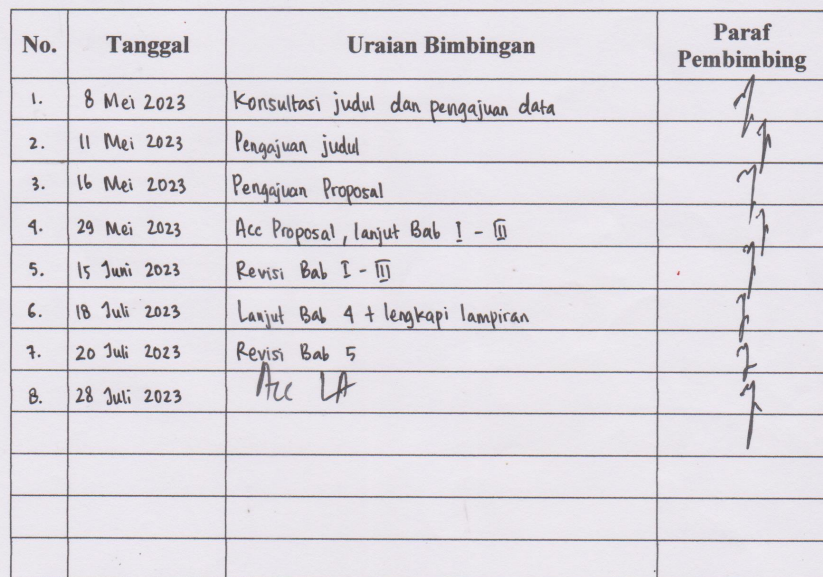 No. Tanggal Uraian Bimbingan Paraf Pembimbing
1. 8 Mei 2023 Konsultasi judul dan pengajuan data
2. 11 Mei 2023 Pengajuan judul
3. 16 Mei 2023 Pengajuan Proposal
4. 29 Mei 2023 Acc Proposal, lanjut Bab I - III
5. 15 Juni 2023 Revisi Bab I - III
6. 18 Juli 2023 Lanjut Bab 4 + lengkapi lampiran
7. 20 Juli 2023 Revisi Bab 5
8. 28 Juli 2023 Acc LA